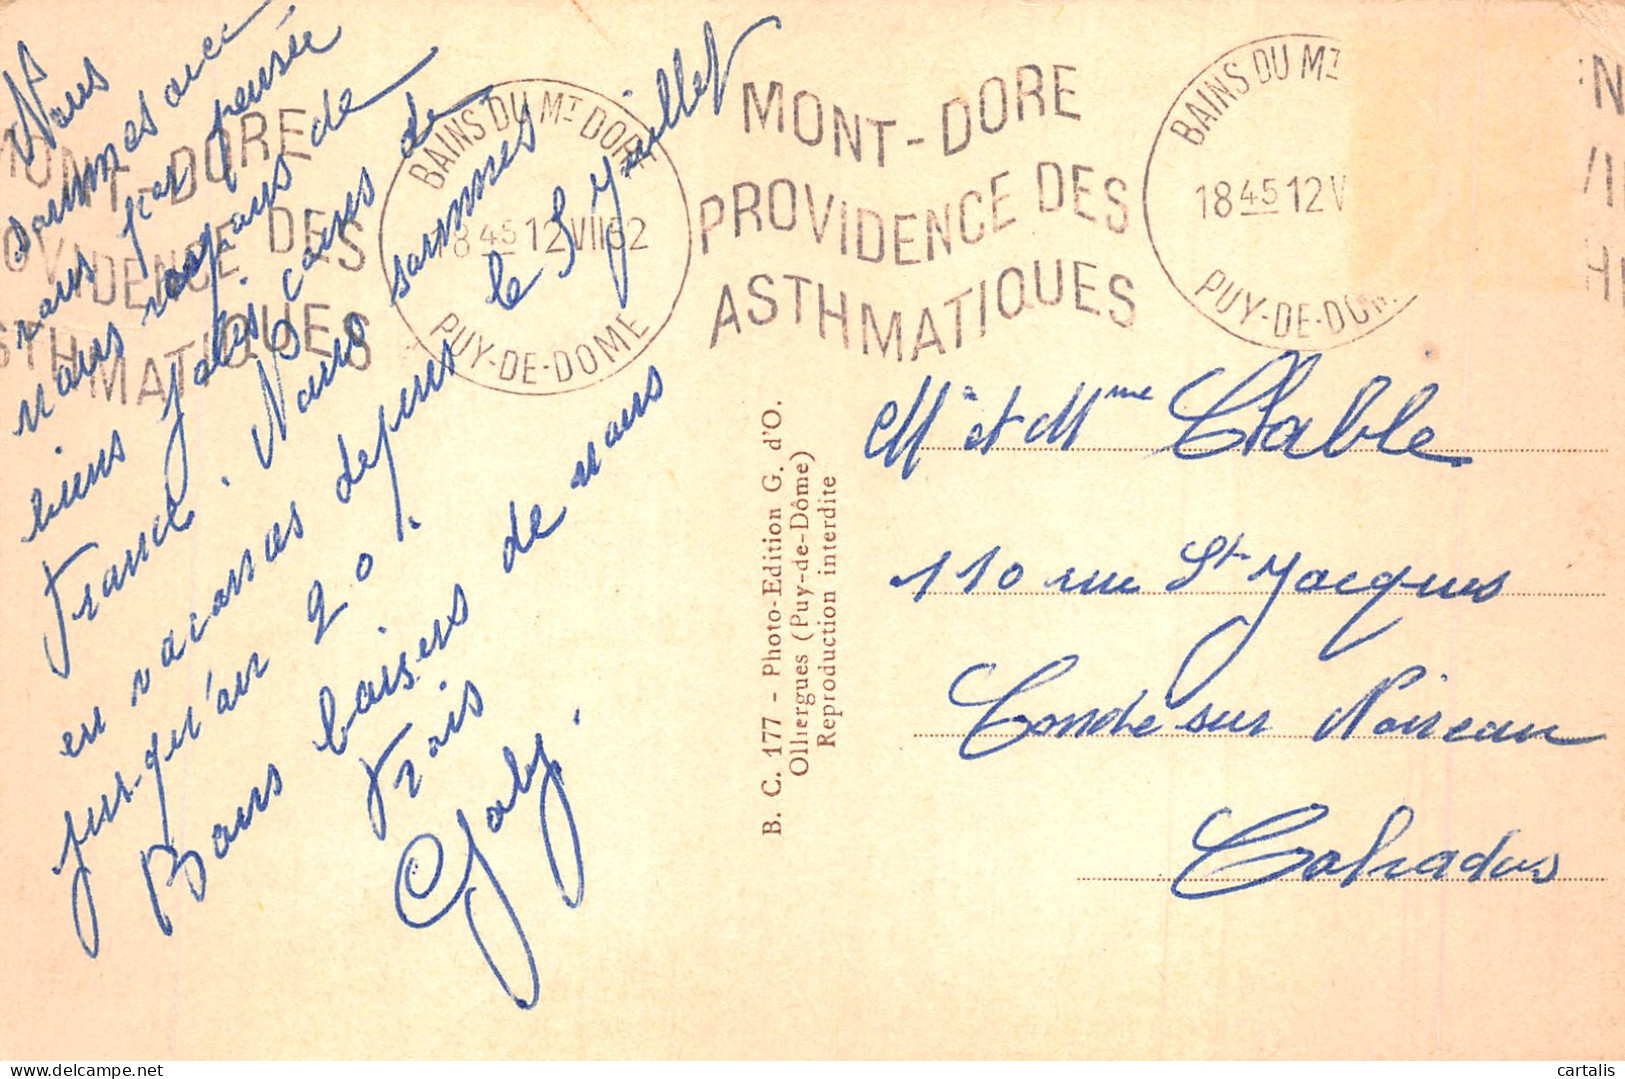 Nous
sommes avec
vous par pensée
nous voyons de
biens jolis coins de
France. Nous sommes
en vacances depuis le 5 Juillet
jusqu'au 20.
Bons baisers de nous
trois
Gaby.
MONT-DORE
PROVIDENCE DES
ASTHMATIQUES
BAINS DU MT DORE
18 45 12 VII 62
PUY-DE-DOME
MONT-DORE
PROVIDENCE DES
ASTHMATIQUES
BAINS DU MT
18 45 12 V
PUY-DE-DOM
B. C. 177 - Photo-Edition G. d'O.
Olliergues (Puy-de-Dôme)
Reproduction interdite
Mr et Mme Clable
110 rue St Jacques
Conde sur Noireau
Calvados
cartalis
delcampe.net